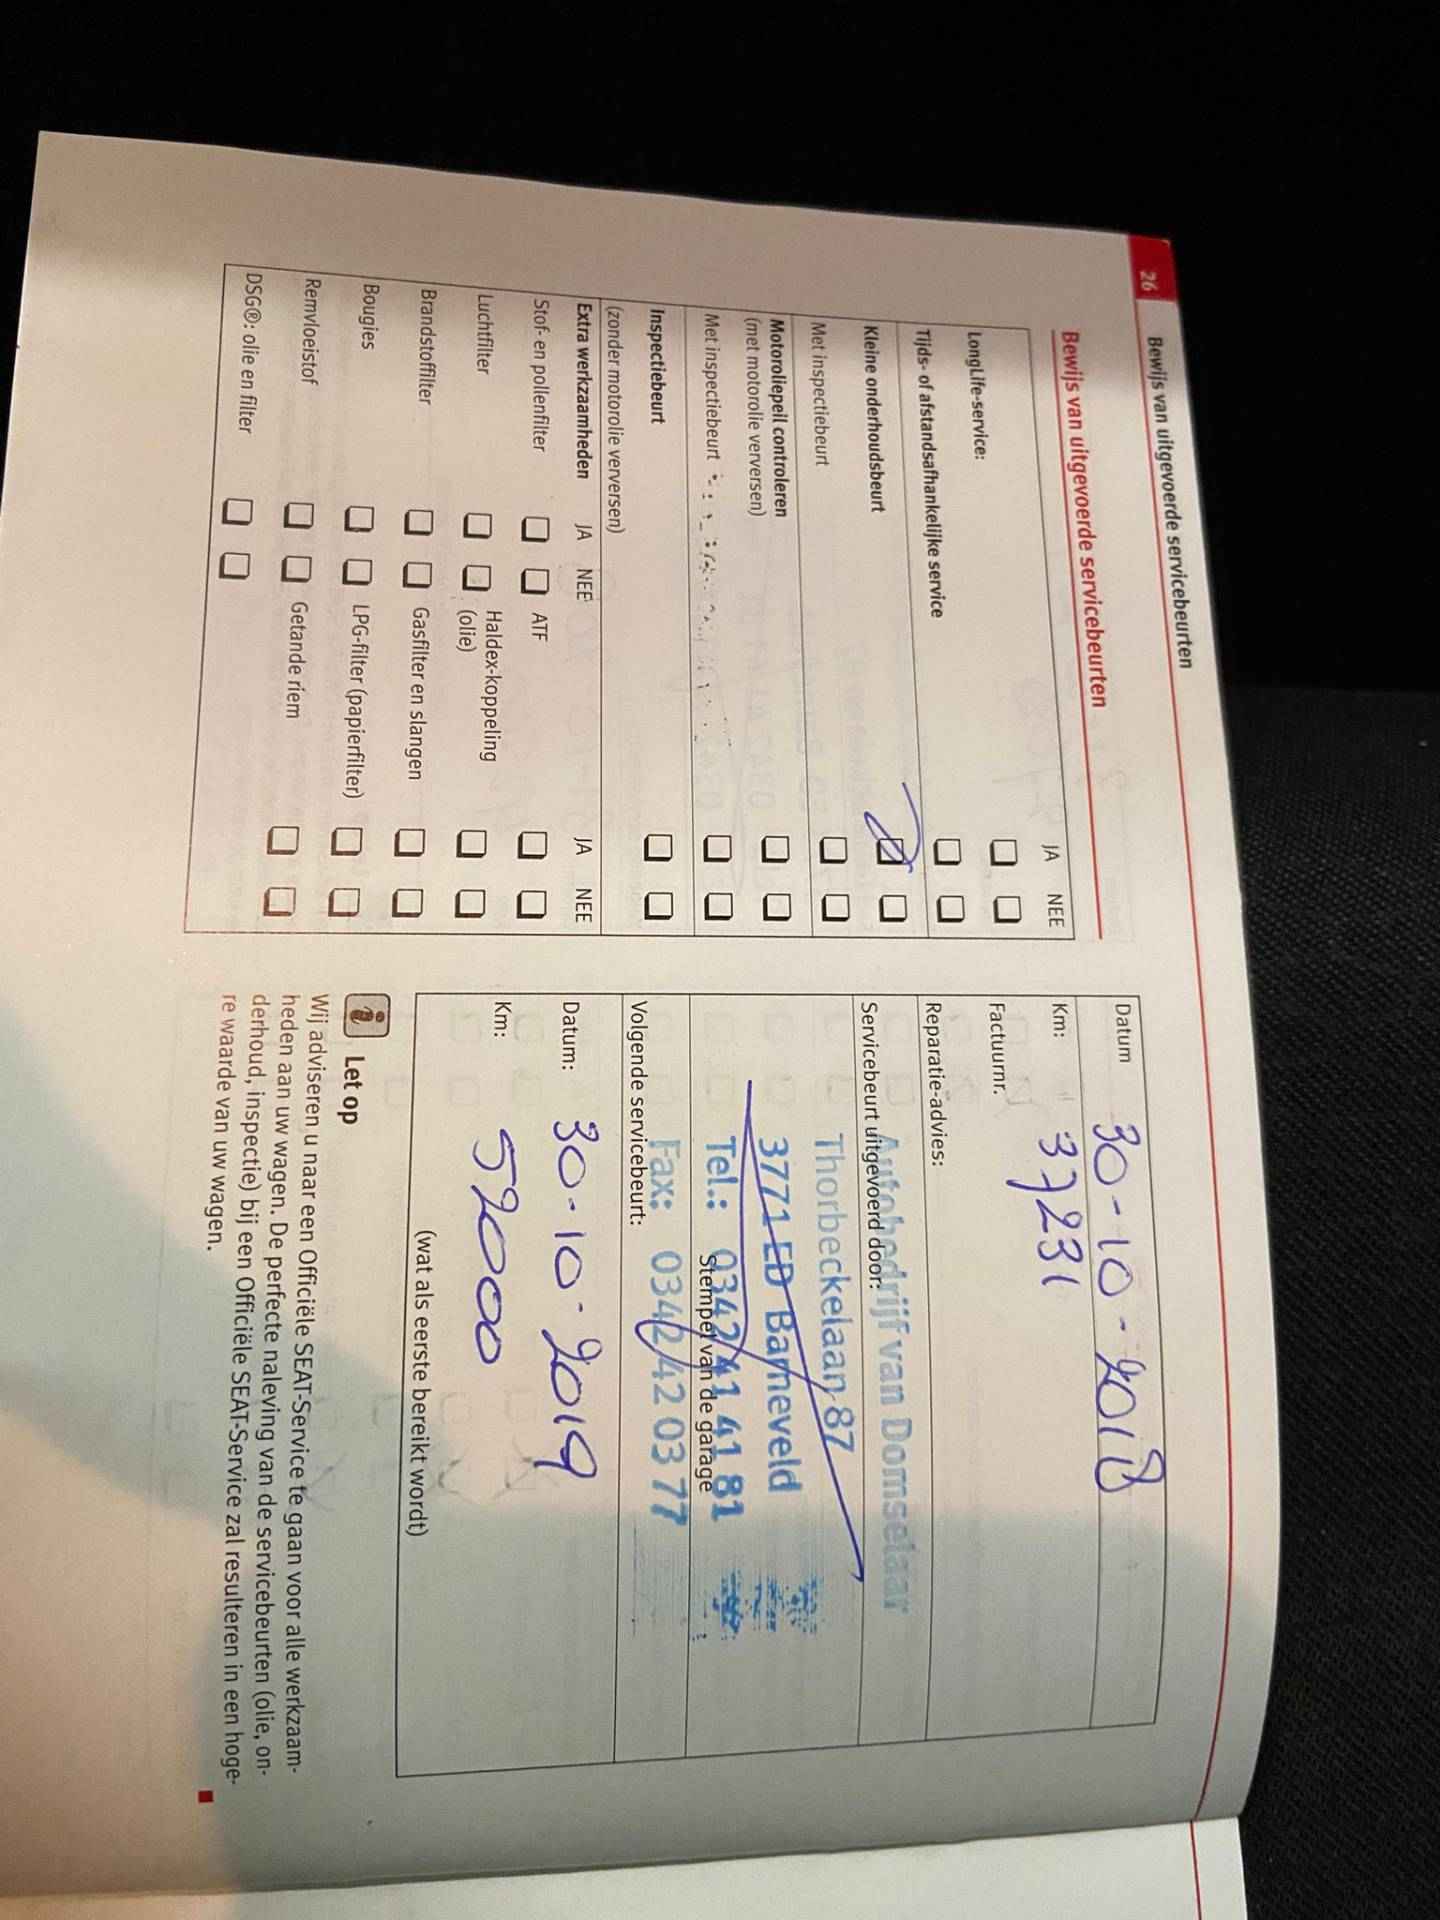 26
Bewijs van uitgevoerde servicebeurten
Bewijs van uitgevoerde servicebeurten
JA NEE
LongLife-service:
Tijds- of afstandsafhankelijke service
Kleine onderhoudsbeurt
Met inspectiebeurt
Motoroliepeil controleren
(met motorolie verversen)
Met inspectiebeurt
Inspectiebeurt
(zonder motorolie verversen)
Extra werkzaamheden JA NEE JA NEE
Stof- en pollenfilter ATF
Luchtfilter Haldex-koppeling
(olie)
Brandstoffilter Gasfilter en slangen
Bougies LPG-filter (papierfilter)
Remvloeistof Getande riem
DSG®: olie en filter
Datum 30-10-2018
Km: 37231
Factuurnr.
Reparatie-advies:
Servicebeurt uitgevoerd door:
Autobedrijf van Domselaar
Thorbeckelaan 87
3771 ED Barneveld
Tel.: 0342 41 41 81
Stempel van de garage
Fax: 0342 42 03 77
Volgende servicebeurt:
Datum: 30-10-2019
Km: 52000
(wat als eerste bereikt wordt)
i Let op
Wij adviseren u naar een Officiële SEAT-Service te gaan voor alle werkzaam-
heden aan uw wagen. De perfecte naleving van de servicebeurten (olie, on-
derhoud, inspectie) bij een Officiële SEAT-Service zal resulteren in een hoge-
re waarde van uw wagen.